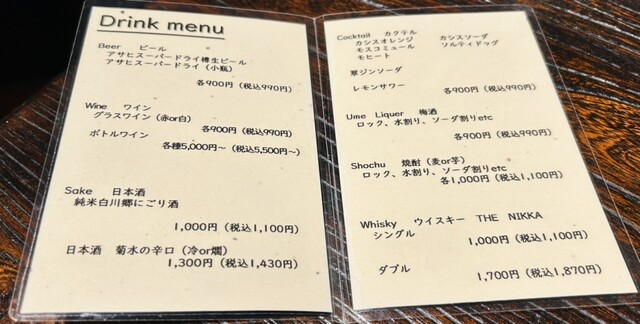 Drink menu
Beer ビール
アサヒスーパードライ樽生ビール
アサヒスーパードライ（小瓶）
各900円（税込990円）
Wine ワイン
グラスワイン（赤or白）
各900円（税込990円）
ボトルワイン
各種5,000円～（税込5,500円～）
Sake 日本酒
純米白川郷にごり酒
1,000円（税込1,100円）
日本酒 菊水の辛口（冷or燗）
1,300円（税込1,430円）
Cocktail カクテル
カシスオレンジ カシスソーダ
モスコミュール ソルティドッグ
モヒート
翠ジンソーダ
レモンサワー 各900円（税込990円）
Ume Liquer 梅酒
ロック、水割り、ソーダ割りetc
各900円（税込990円）
Shochu 焼酎（麦or芋）
ロック、水割り、ソーダ割りetc
各1,000円（税込1,100円）
Whisky ウイスキー THE NIKKA
シングル
1,000円（税込1,100円）
ダブル
1,700円（税込1,870円）